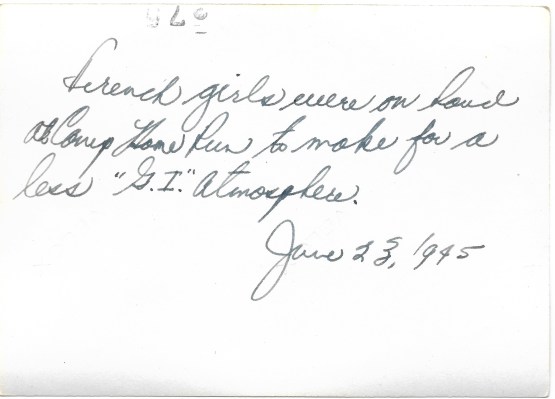 French girls were on hand
at Camp Home Run to make for a
less "G.I." atmosphere.
June 23, 1945